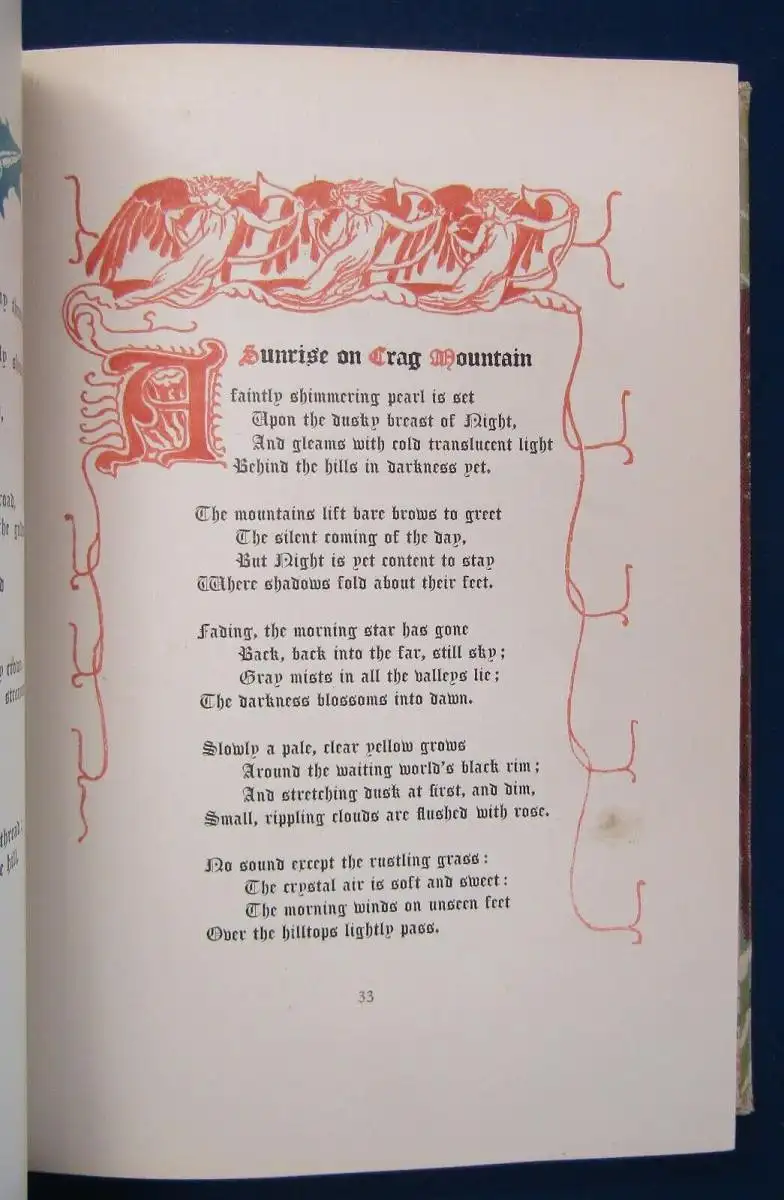 Sunrise on Crag Mountain
A faintly shimmering pearl is set
Upon the dusky breast of Night,
And gleams with cold translucent light
Behind the hills in darkness yet.
The mountains lift bare brows to greet
The silent coming of the day,
But Night is yet content to stay
Where shadows fold about their feet.
Fading, the morning star has gone
Back, back into the far, still sky;
Gray mists in all the valleys lie;
The darkness blossoms into dawn.
Slowly a pale, clear yellow grows
Around the waiting world's black rim;
And stretching dusk at first, and dim,
Small, rippling clouds are flushed with rose.
No sound except the rustling grass:
The crystal air is soft and sweet:
The morning winds on unseen feet
Over the hilltops lightly pass.
33